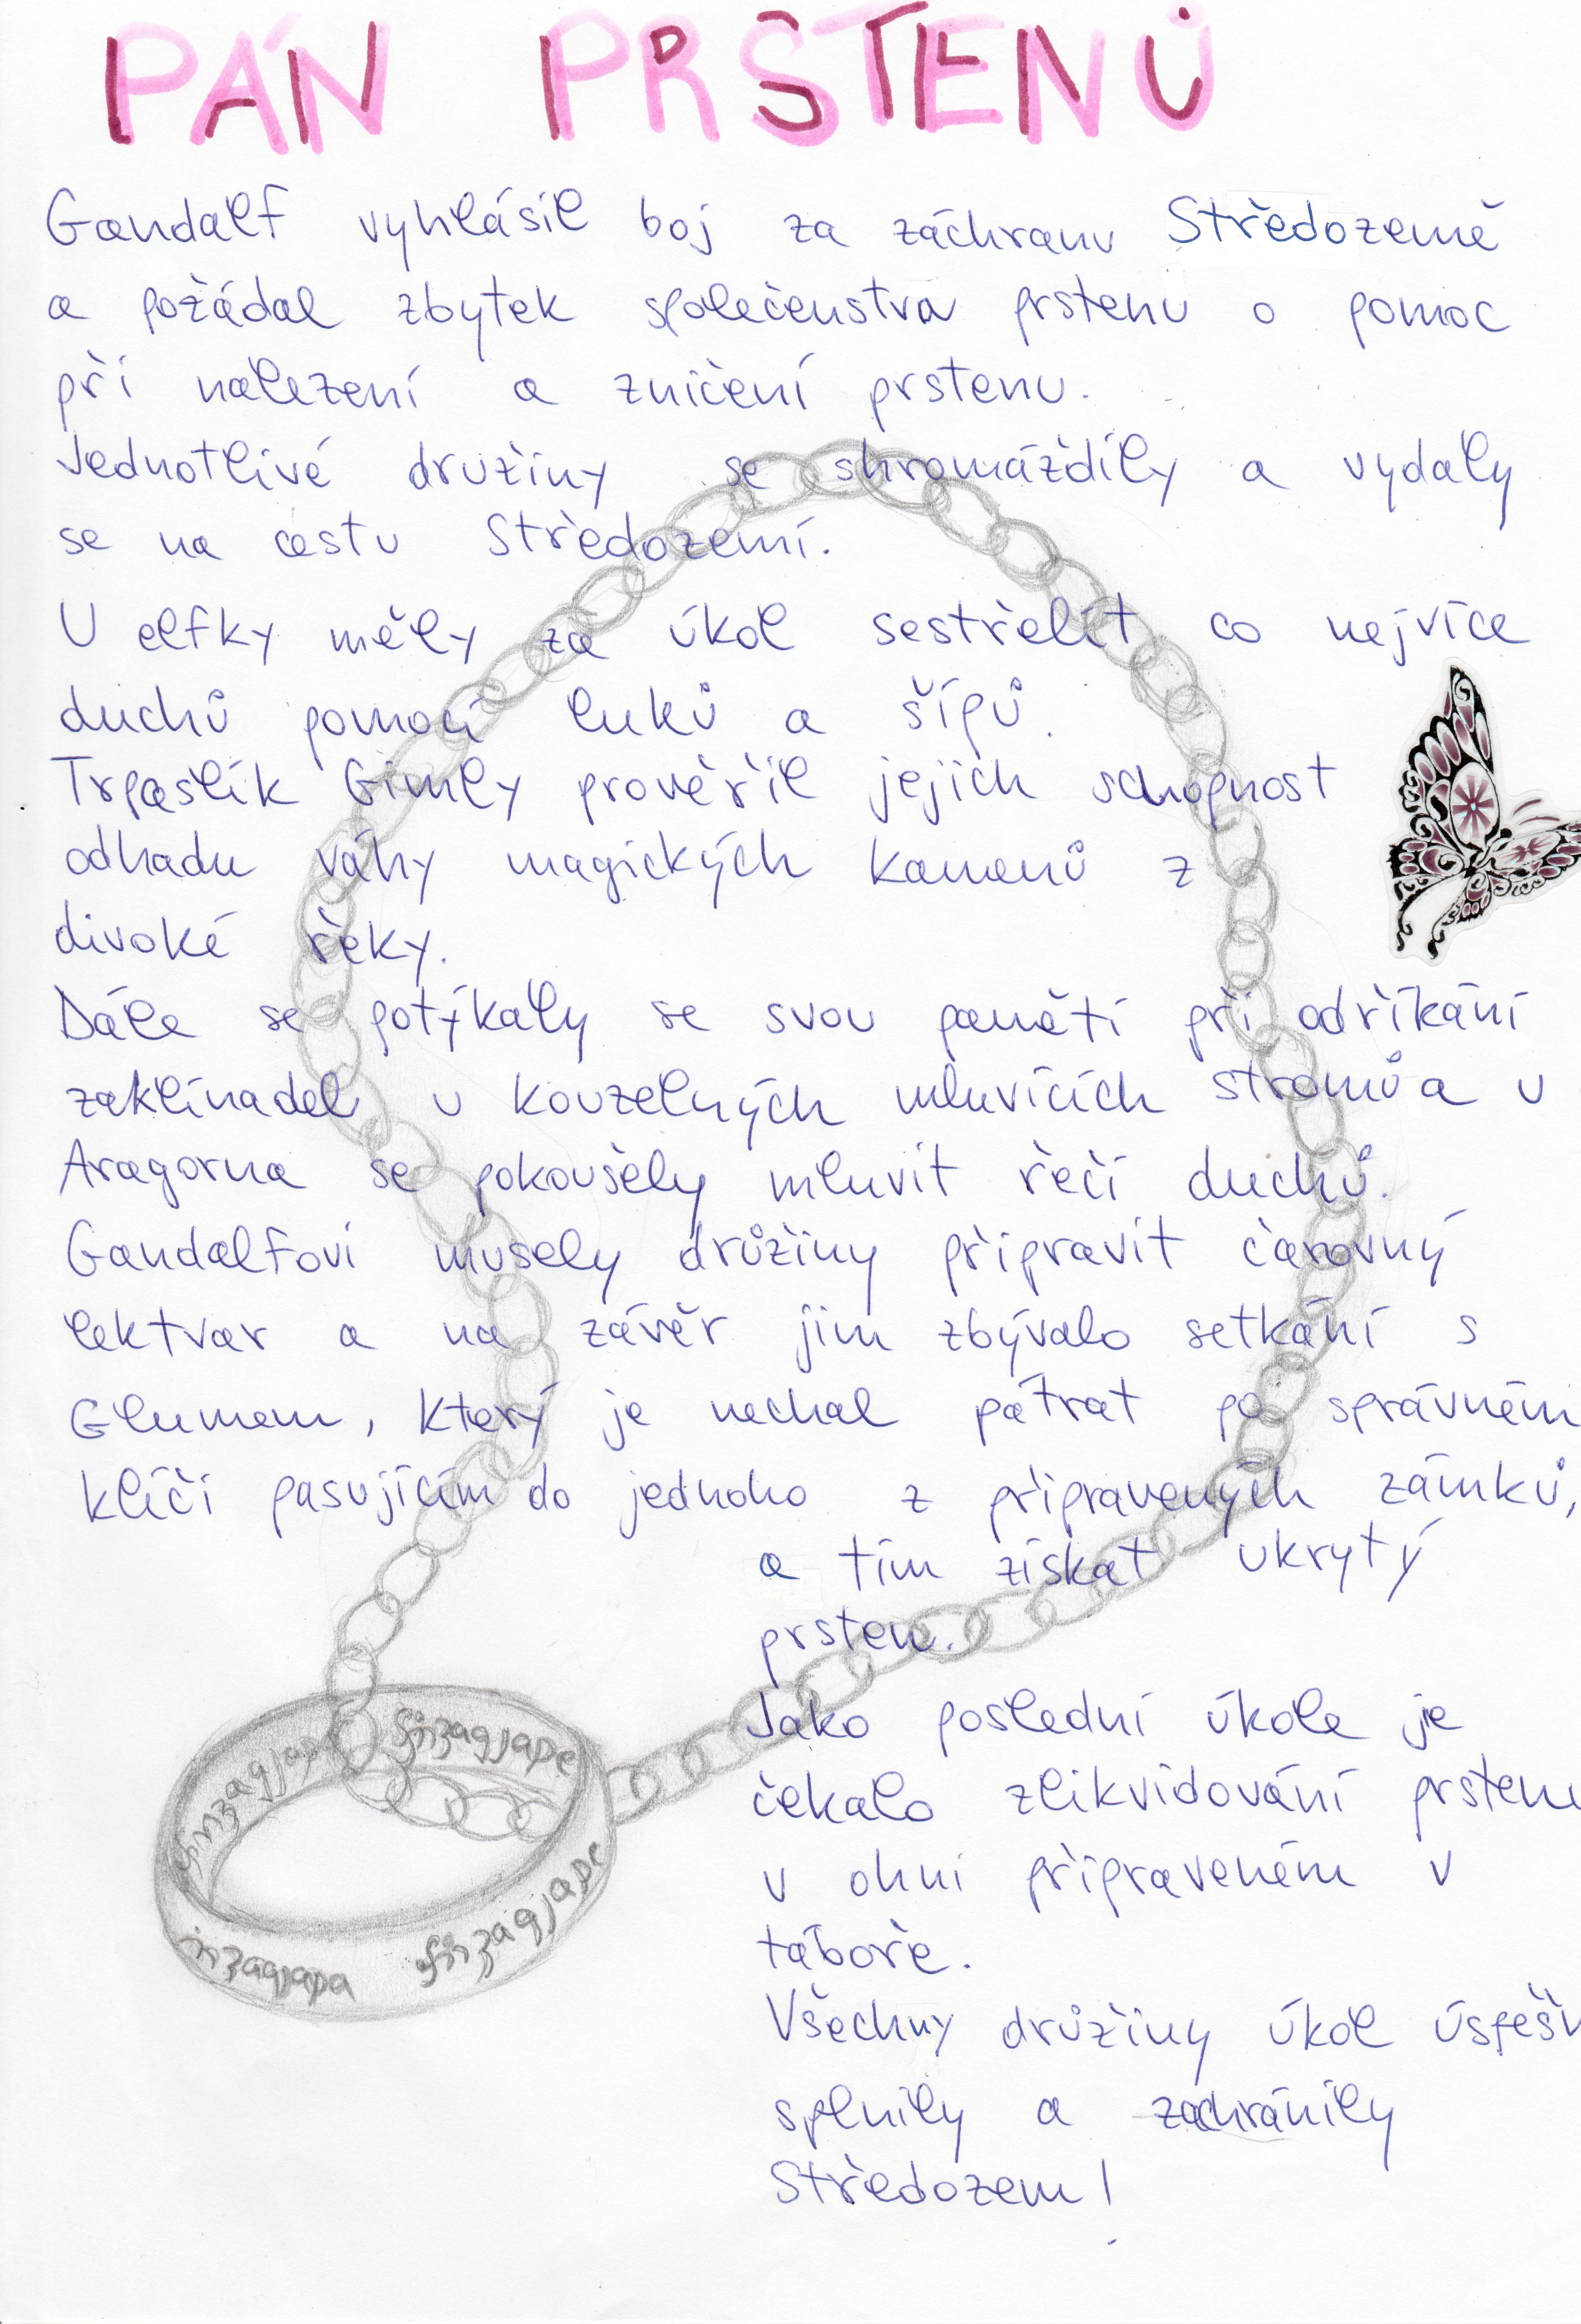 PÁN PRSTENŮ
Gandalf vyhlásil boj za záchranu Středozemě
a požádal zbytek společenstva prstenu o pomoc
při nalezení a zničení prstenu.
Jednotlivé družiny se shromáždily a vydaly
se na cestu Středozemí.
U elfky měly za úkol sestřelit co nejvíce
duchů pomocí luků a šípů.
Trpaslík Gimly prověřil jejich schopnost
odhadu váhy magických kamenů z
divoké řeky.
Dále se potýkaly se svou pamětí při odříkání
zaklínadel u kouzelných mluvících stromů a u
Aragorna se pokoušely mluvit řečí duchů.
Gandalfovi musely drůžiny připravit čarovný
lektvar a na závěr jim zbývalo setkání s
Glumem, který je nechal pátrat po správném
klíči pasujícím do jednoho z připravených zámků,
a tím získat ukrytý
prsten.
Jako poslední úkole je
čekalo zlikvidování prstenu
v ohni připraveném v
táboře.
Všechny drůžiny úkol úspěšn
splnily a zachránily
Středozem!